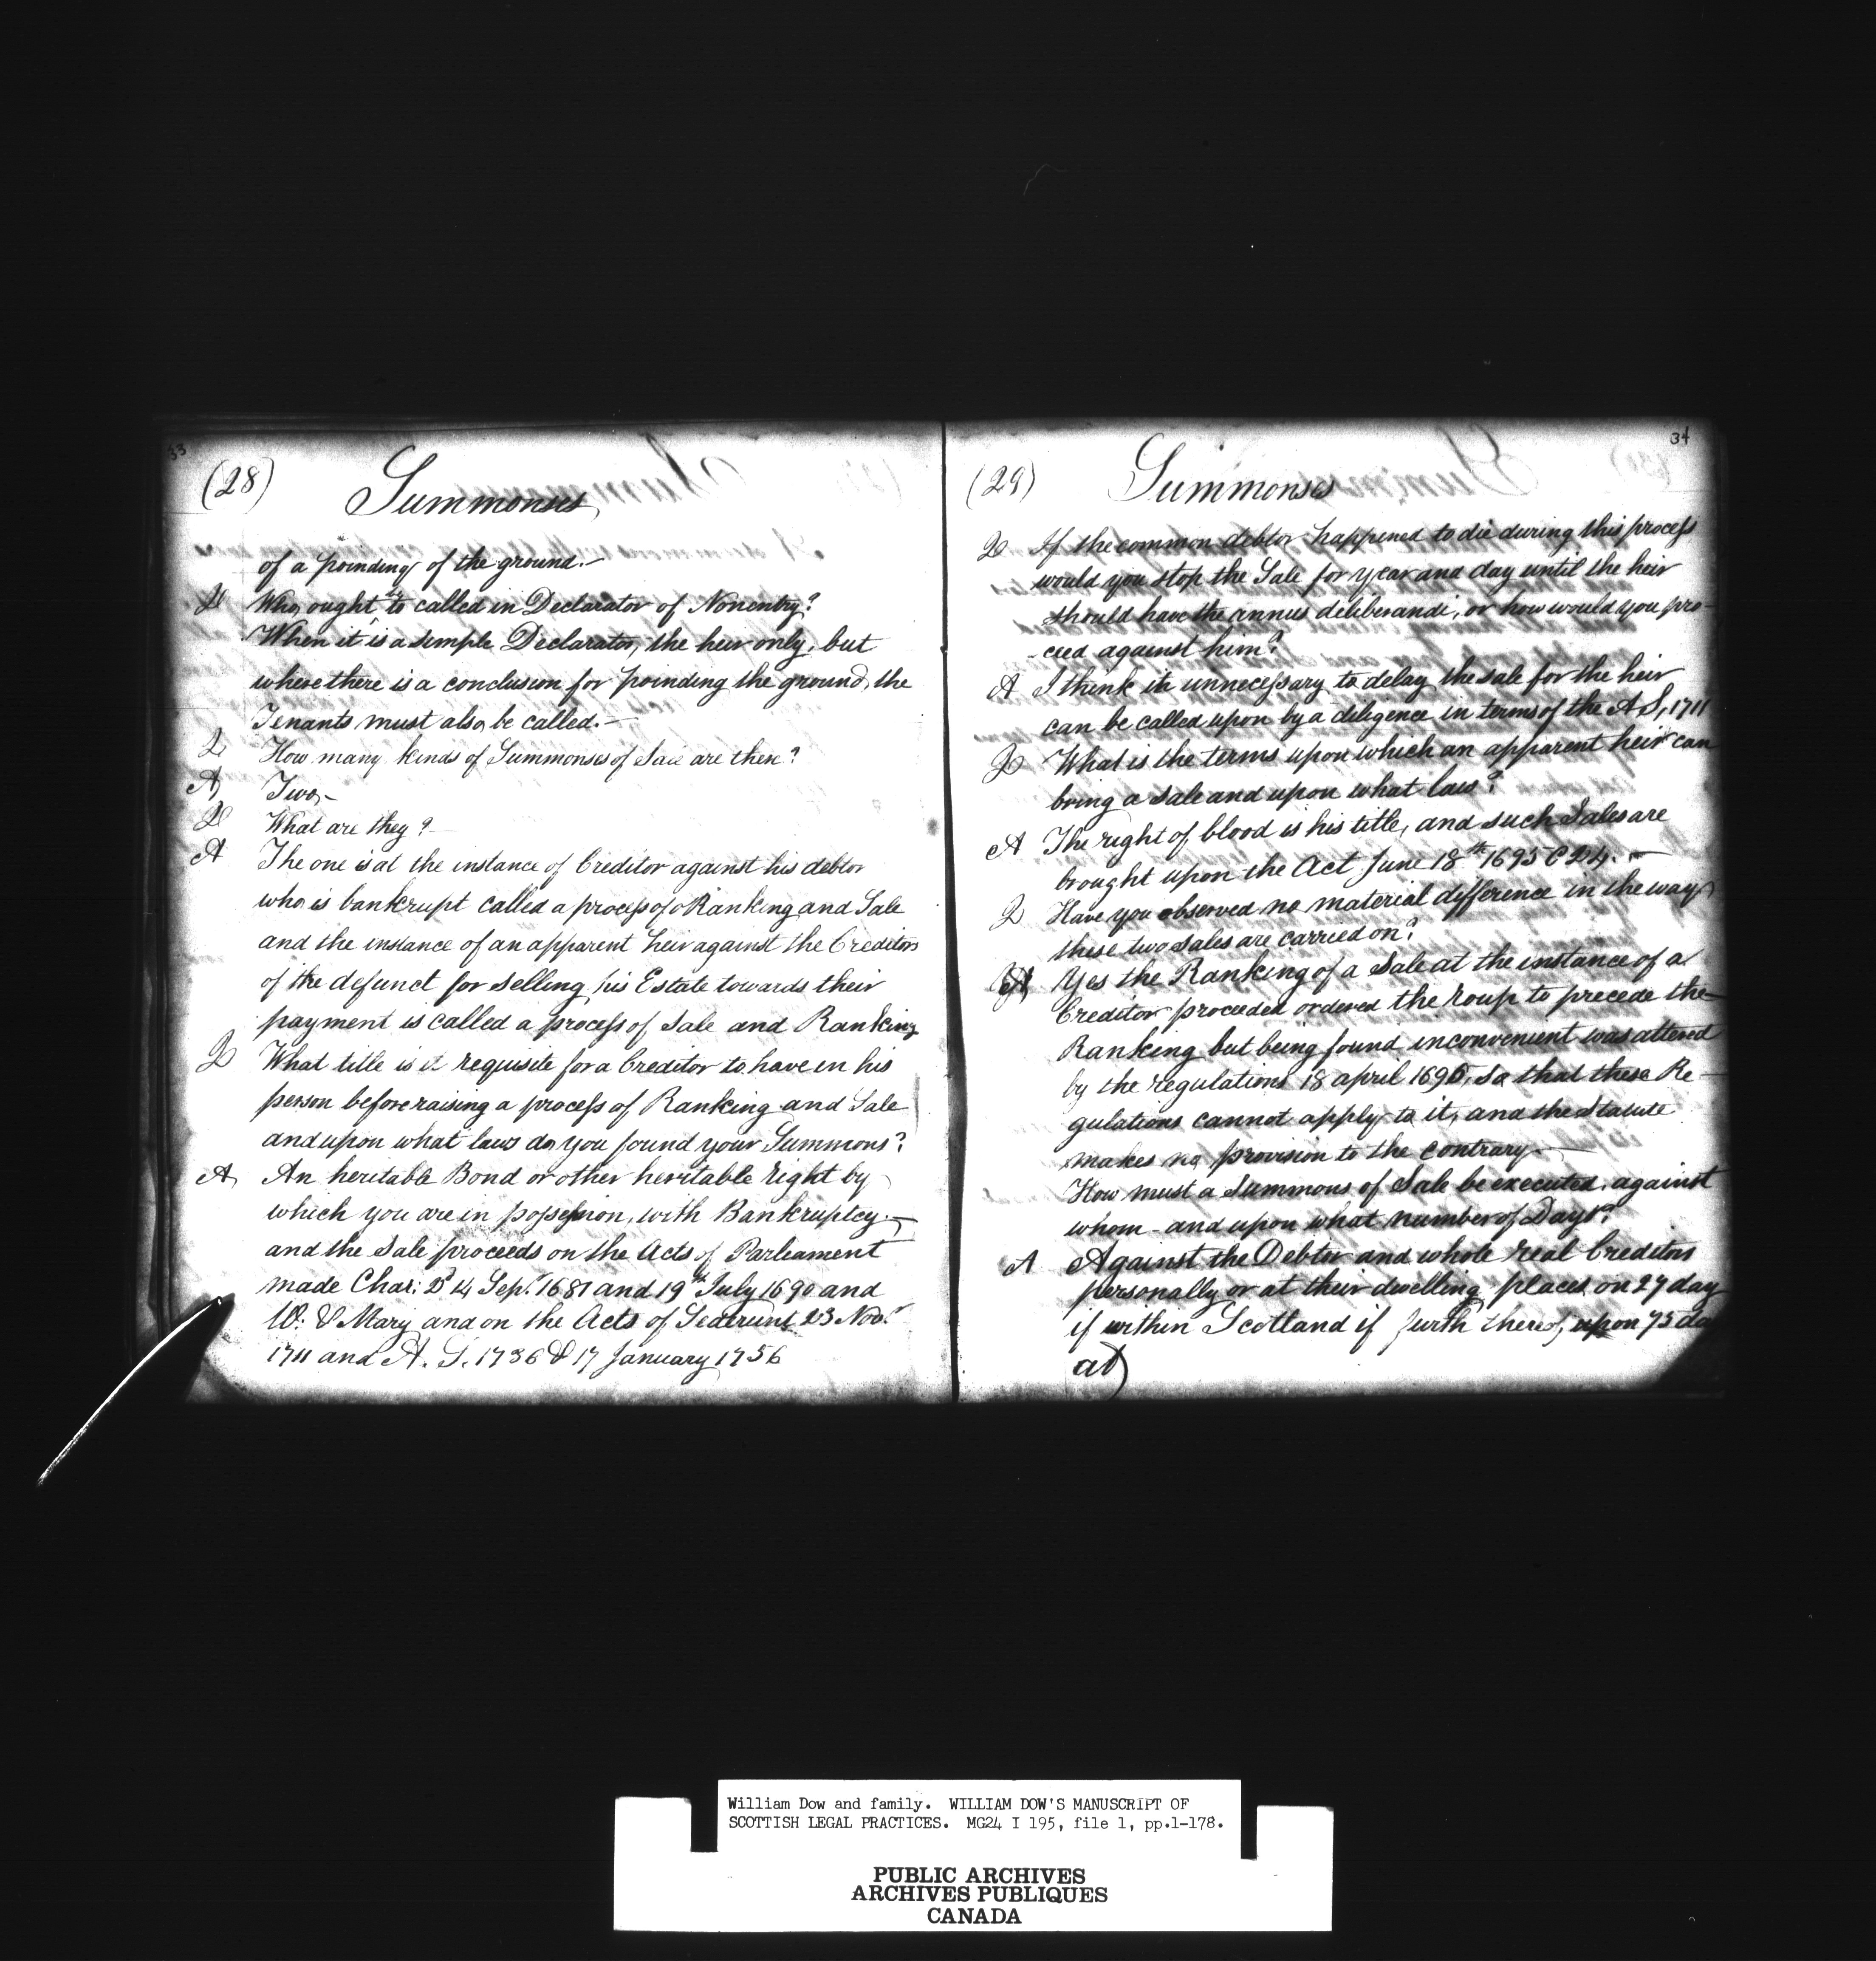 33
(28)
Summonses
of a poinding of the ground.—
Q Who ought to called in Declarator of Nonentry?
When it is a simple Declarator, the heir only, but
where there is a conclusion for poinding the ground, the
Tenants must also be called.—
Q How many kinds of Summonses of Sale are then?
A Two,—
Q What are they?—
A The one is at the instance of Creditor against his debtor
who is bankrupt called a process of Ranking and Sale
and the instance of an apparent heir against the Creditors
of the defunct for selling his Estate towards their
payment is called a process of Sale and Ranking
Q What title is it requisite for a Creditor to have in his
person before raising a process of Ranking and Sale
and upon what laws do you found your Summons?
A An heritable Bond or other heritable right by
which you are in possession, with Bankruptcy.—
and the Sale proceeds on the Acts of Parleament
made Chas: 2d 14 Sep.r 1681 and 19th July 1690 and
W: & Mary and on the Acts of Sederunt 23 Nov.r
1711 and A. S. 1736 & 17 January 1756
34
(29)
Summonses
Q If the common debtor happened to die during this process
would you stop the Sale for year and day until the heir
should have the annus deliberandi, or how would you pro-
-ceed against him?
A I think it unnecessary to delay the sale for the heir
can be called upon by a diligence in terms of the A S, 1711
Q What is the terms upon which an apparent heir can
bring a sale and upon what law?
A The right of blood is his title, and such Sales are
brought upon the Act June 18th 1695 C 24.—
Q Have you observed no material difference in the way
these two sales are carried on?
A Yes the Ranking of a Sale at the instance of a
Creditor proceeded ordered the roup to precede the
Ranking but being found inconvenient was altered
by the regulations 18 april 1695, so that these Re-
gulations cannot apply to it, and the Statute
makes no provision to the contrary—
How must a Summons of Sale be executed, against
whom - and upon what number of Days?
A Against the Debtor and whole real Creditors
personally or at their dwelling places on 27 day
if within Scotland if furth thereof, upon 75 da
at
William Dow and family. WILLIAM DOW'S MANUSCRIPT OF
SCOTTISH LEGAL PRACTICES. MG24 I 195, file 1, pp.1-178.
PUBLIC ARCHIVES
ARCHIVES PUBLIQUES
CANADA